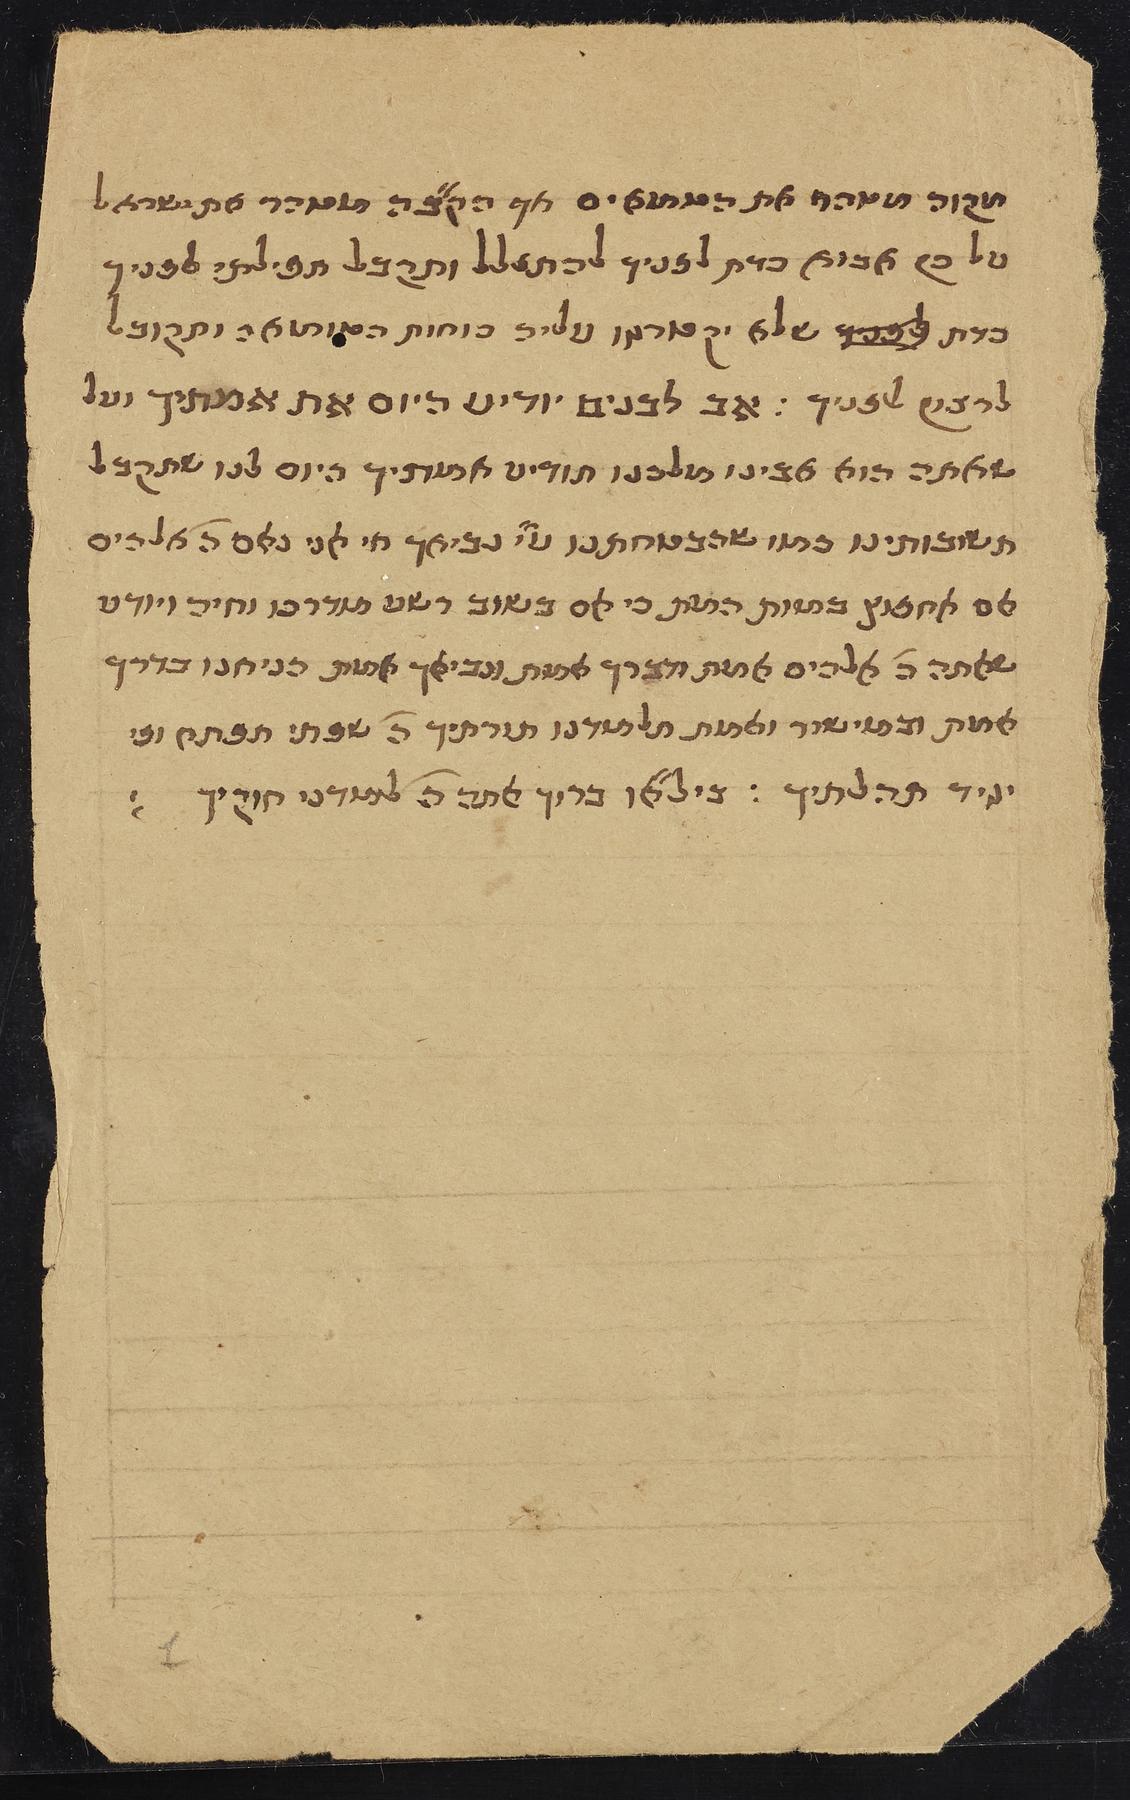 מקוה מטהר את הטמאים אף הק״בה מטהר את ישראל
על כן אבוא כעת לפניך להתפלל ותקבל תפילתי לפניך
כעת שלא יקטרגו עליה כוחות הטומאה ותקובל
לרצון לפניך : אב לבנים יודיע היום את אמתיך ועל
שאתה הוא אבינו מלכנו תודיע אמתיך היום לנו שתקבל
תשובותינו כמו שהבטחתנו ע״י נביאך חי אני נאם ה׳ אלהים
אם אחפוץ במות המת כי אם בשוב רשע מדרכו וחיה ויודע
שאתה ה׳ אלהים אמת ודברך אמת ונביאך אמת הניחנו בדרך
אמת ובמישור ואמת תלמדנו תורתיך ה׳ שפתי תפתח ופי
יגיד תהלתיך : בילא״ו ברוך אתה ה׳ למדני חוקיך
1